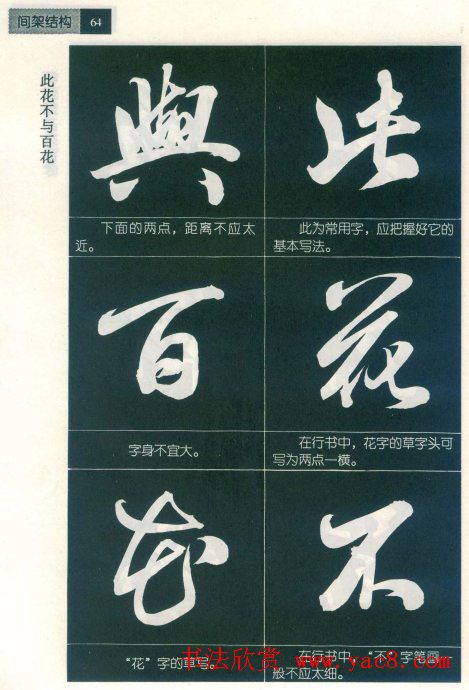 间架结构 64
此花不与百花
此
此为常用字，应把握好它的
基本写法。
花
在行书中，花字的草字头可
写为两点一横。
不
在行书中，“不”字笔画一
般不应太细。
與
下面的两点，距离不应太
近。
百
字身不宜大。
花
“花”字的草写。
书法欣赏 www.yac8.com